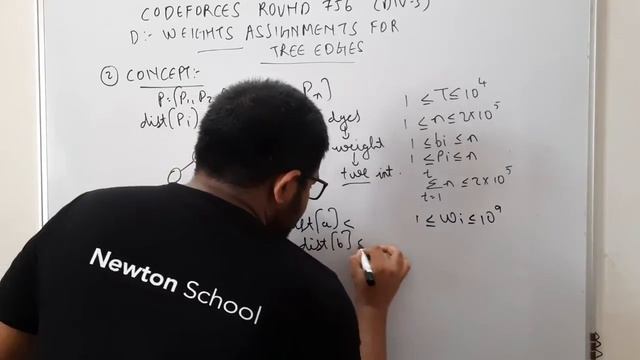 CODEFORCES ROUND 756 (DIV-3)
D:- WEIGHTS ASSIGNMENTS FOR
TREE EDGES
② CONCEPT:-
P=[P1, P2 Pn]
dist[Pi]
weight
+ve int.
dist[b] <
1 ≤ T ≤ 10^4
1 ≤ n ≤ 2×10^5
1 ≤ bi ≤ n
1 ≤ Pi ≤ n
t
Σ n ≤ 2×10^5
t=1
1 ≤ Wi ≤ 10^9
Newton School